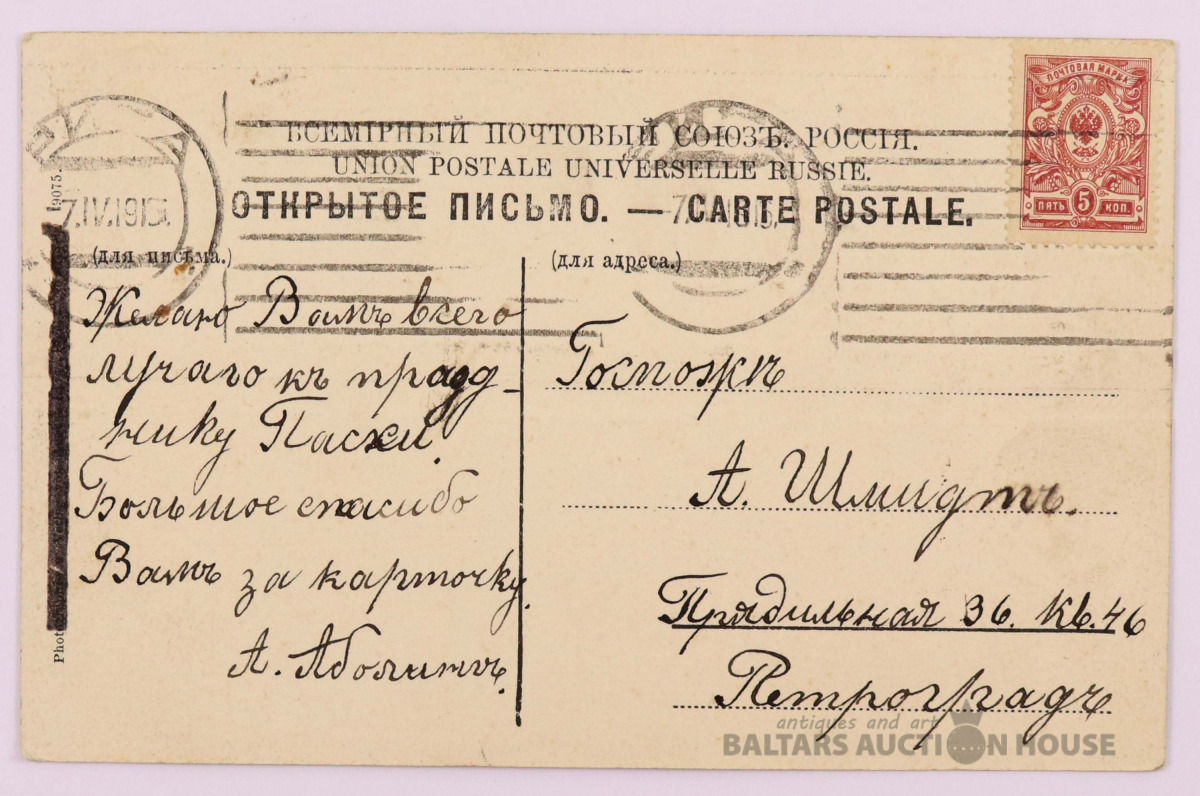 ПОЧТОВАЯ МАРКА
ПЯТЬ 5 КОП.
ВСЕМІРНЫЙ ПОЧТОВЫЙ СОЮЗЪ. РОССІЯ.
UNION POSTALE UNIVERSELLE RUSSIE.
ОТКРЫТОЕ ПИСЬМО. — CARTE POSTALE.
19075.
7.IV.1915
(для письма.)
(для адреса.)
Желаю Вамъ всего
лучаго къ празд-
нику Пасхи.
Большое спасибо
Вамъ за карточку.
А. Аболитъ.
Госпожѣ
А. Шмидтъ.
Прядильная 36. кв. 46
Петроградъ
Phot
antiques and art
BALTARS AUCTION HOUSE